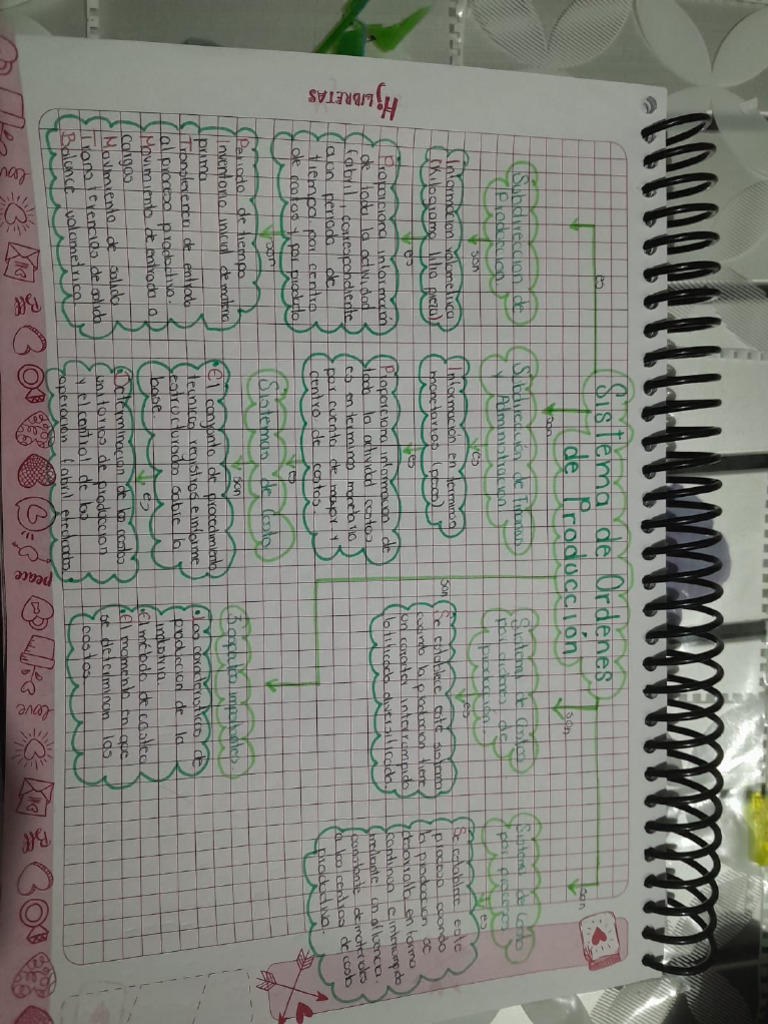 Sistema de Ordenes
de Producción
es
son
son
son
son
Subdireccion de
Produccion
son
Informacion volumetrica
(Kilogramo, litro, pieza)
es
Proporciona informacion
de toda la actividad
fabril, correspondiente
a un periodo de
tiempo por centro
de costos y por producto
son
Periodo de tiempo
Inventario inicial de materia
prima
Transferencia de entrada
al proceso productivo.
Movimiento de entrada o
cargos
Movimiento de salida
Transferencias de salida
Balance volumetrico
Subdireccion de Finanzas
y Administracion
es
Informacion en terminos
monetarios (pesos)
es
Proporciona informacion de
toda la actividad costos
es en terminos monetario
por cuenta de mayor y
centro de costos.
es
Sistemas de Costo
son
•El conjunto de procedimiento
tecnica, registros e informe
estructurados sobre la
base.
es
•Determinacion de los costos
unitarios de produccion
y el control de las
operacion fabril efectuadas.
Sistema de Costos
por ordenes de
produccion
es
Se establece este sistema
cuando la produccion tiene
un caracter interrumpido
lotificado, diversificado
3 aspectos importantes
•Las caracteristicas de
produccion de la
industria
•El método de costeo
•El momento en que
se determinan los
costos
Sistema de Costo
por procesos
es
Se establece este
cuando
la produccion se
desarrolla en forma
continua e ininterrumpida
mediante un afluencia
constante de materiales
a los centros de costo
productivo.
Hj LIBRETAS
love
peace
love